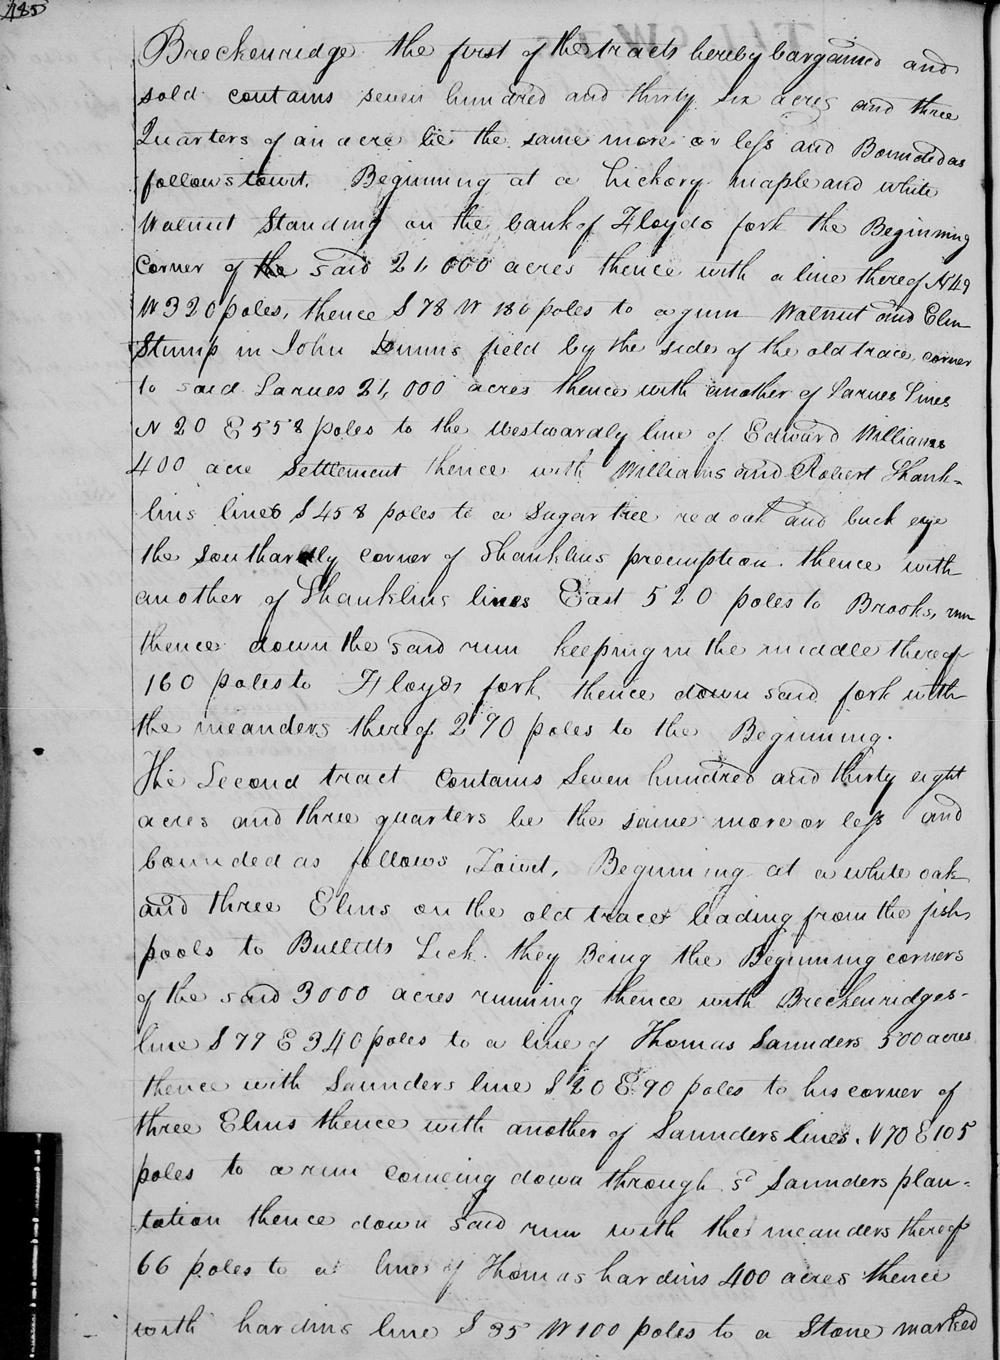 485
Breckenridge the first of the tracts hereby bargained and
sold contains seven hundred and thirty six acres and three
Quarters of an acre be the same more or less and Bounded as
follows towit. Beginning at a hickory maple and white
Walnut Standing on the bank of Floyds fork the Beginning
Corner of the said 21,000 acres thence with a line thereof N 49
W 320 poles, thence S 78 W 180 poles to a gum Walnut and Elm
Stump in John Dunns field by the side of the old trace corner
to said Larues 21,000 acres thence with another of Larues lines
N 20 E 558 poles to the Westwardly line of Edward Williams
400 acre Settlement thence with Williams and Robert Shank-
lins lines S 458 poles to a Sugar tree red oak and buck eye
the Southardly corner of Shanklins preemption. thence with
another of Shanklins lines East 520 poles to Brooks, run
thence down the said run keeping in the middle thereof
160 poles to Floyds fork, thence down said fork with
the meanders thereof 290 poles to the Beginning.
The Second tract Contains Seven hundred and thirty eight
acres and three quarters be the same more or less and
bounded as follows, Towit, Beginning at a white oak
and three Elms on the old trace leading from the fish
pools to Bullitts Lick. they Being the Beginning corners
of the said 3000 acres running thence with Breckenridges-
line S 77 E 340 poles to a line of Thomas Saunders 500 acres
thence with Saunders line S 20 E 90 poles to his corner of
three Elms thence with another of Saunders lines, N 70 E 105
poles to a run comeing down through sd Saunders plan-
tation thence down said run with the meanders thereof
66 poles to a line of Thomas hardins 400 acres thence
with hardins line S 35 W 100 poles to a Stone marked